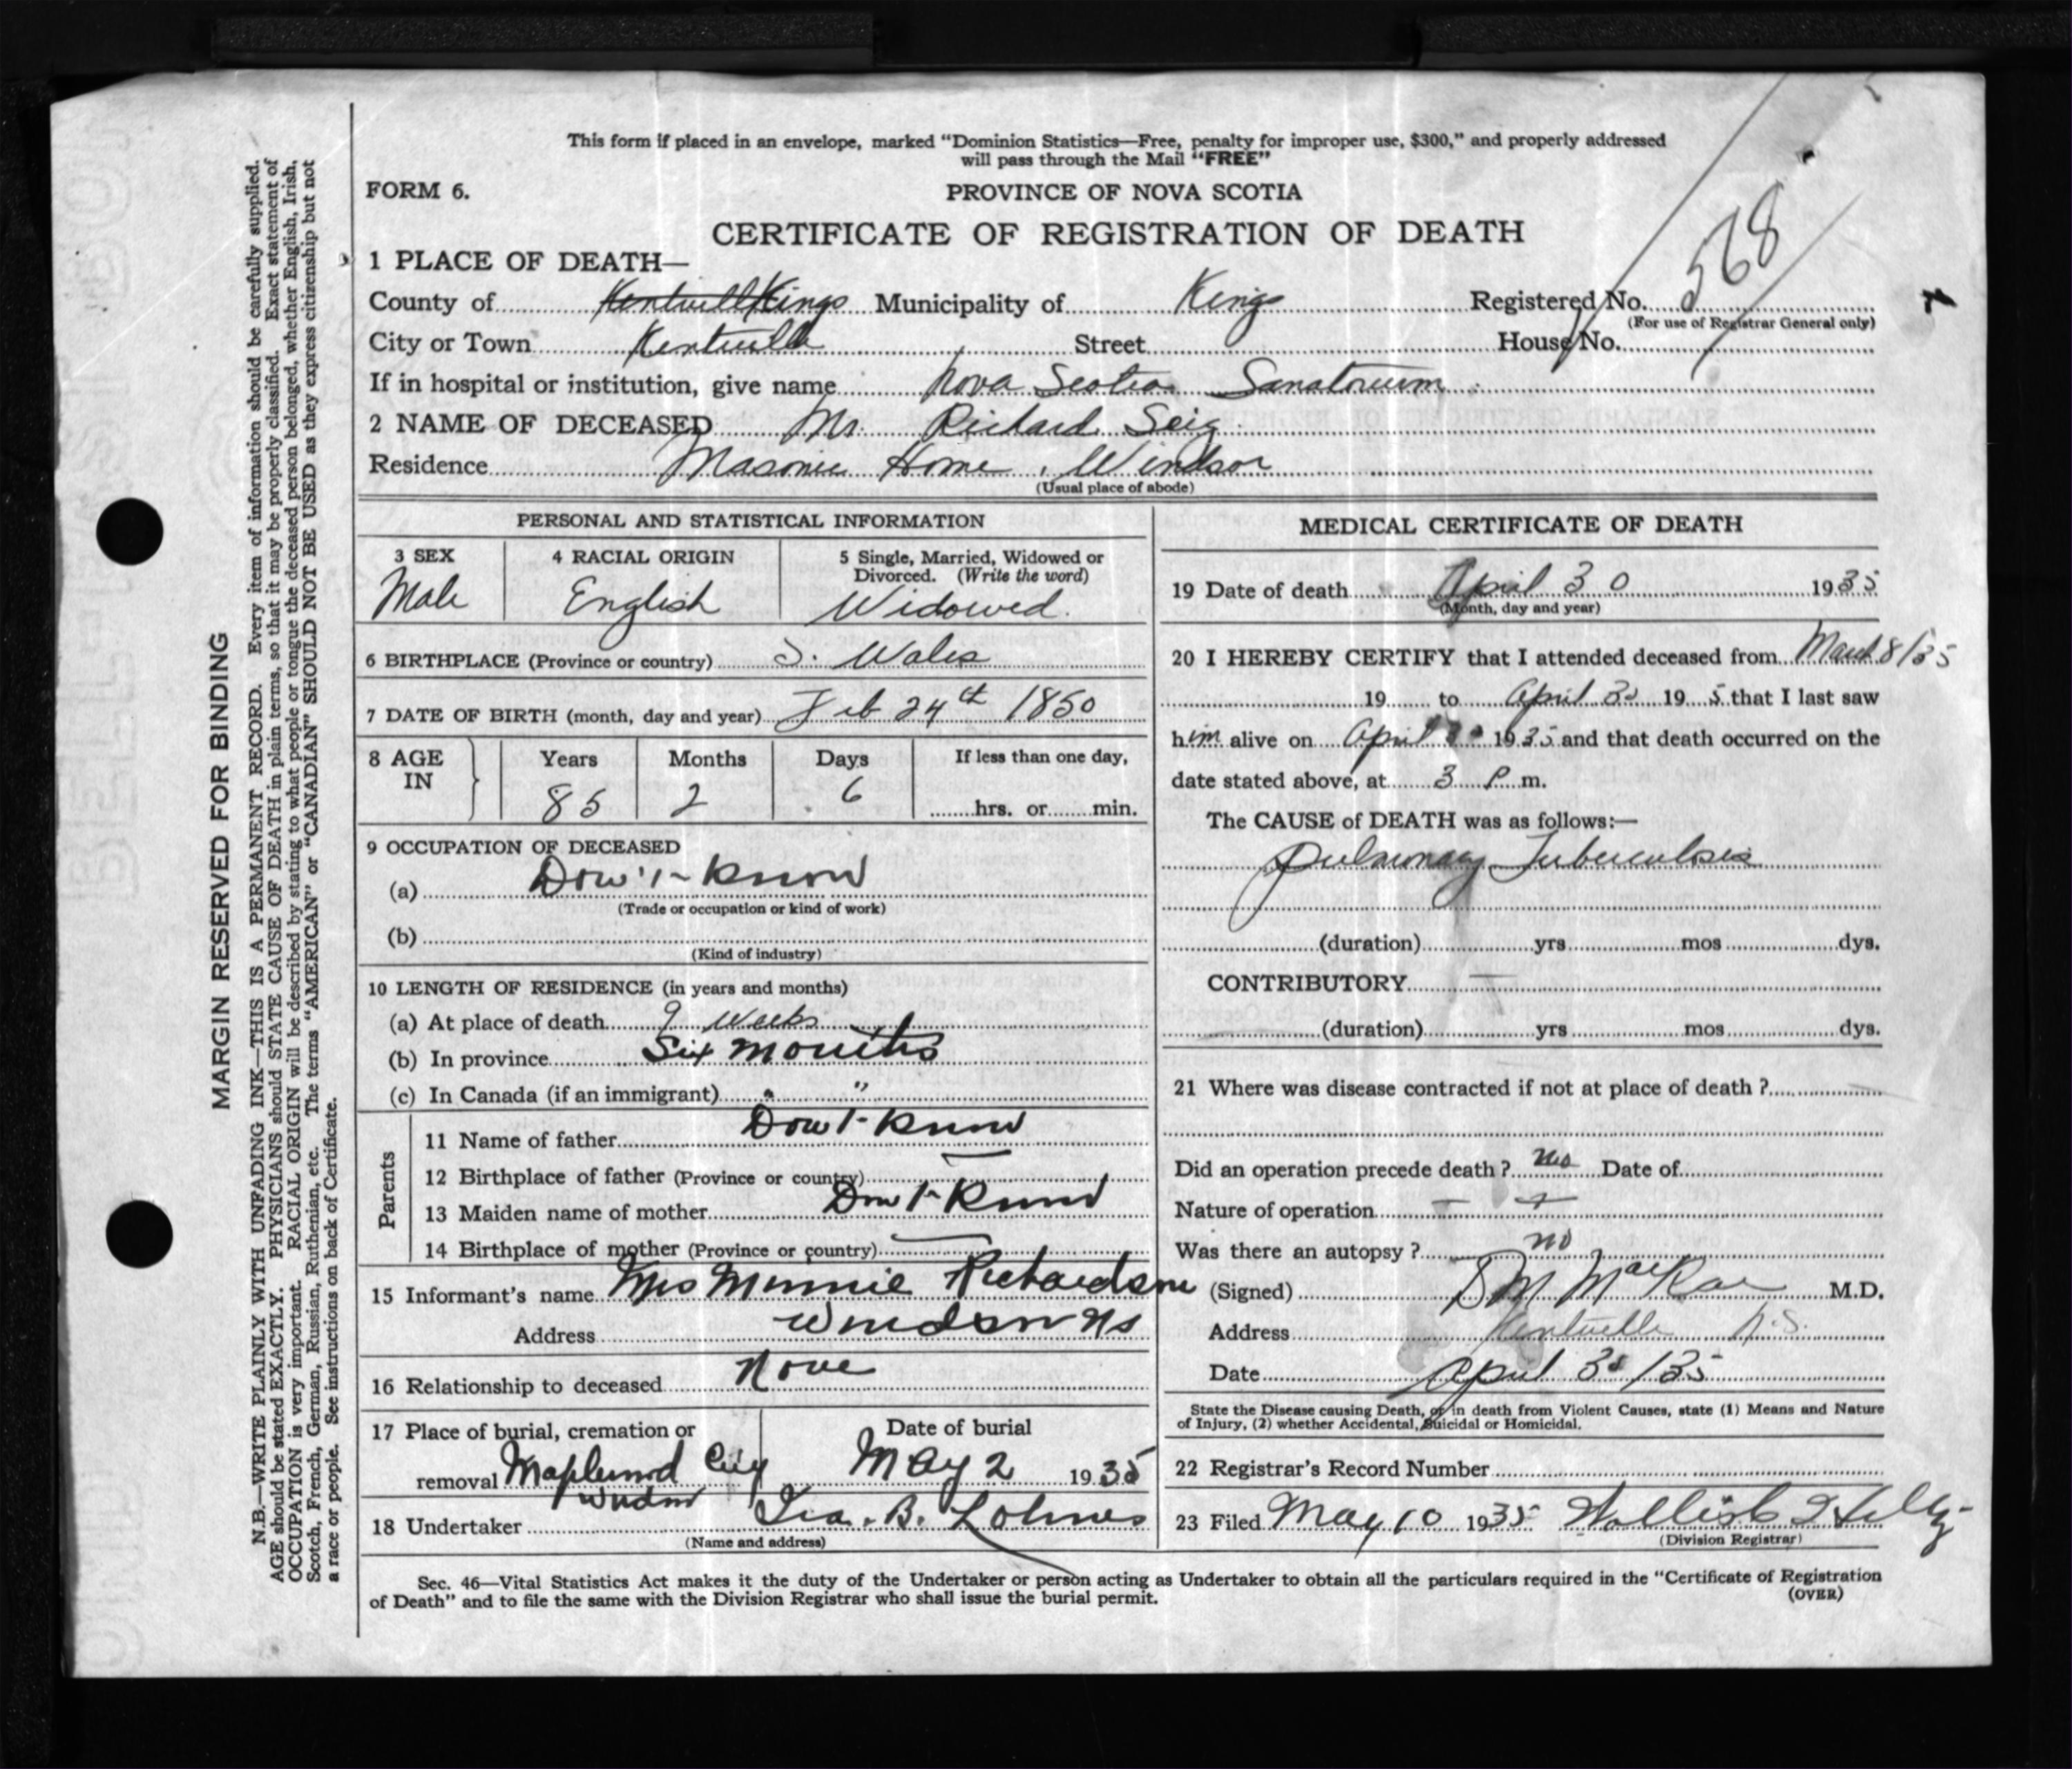 This form if placed in an envelope, marked “Dominion Statistics—Free, penalty for improper use, $300,” and properly addressed
will pass through the Mail “FREE”
FORM 6.
PROVINCE OF NOVA SCOTIA
CERTIFICATE OF REGISTRATION OF DEATH
568
1 PLACE OF DEATH—
County of Kentvill Kings Municipality of Kings Registered No.
(For use of Registrar General only)
City or Town Kentville Street House No.
If in hospital or institution, give name Nova Scotia Sanatorium
2 NAME OF DECEASED Mr. Richard Seig
Residence Masonic Home, Windsor
(Usual place of abode)
PERSONAL AND STATISTICAL INFORMATION
3 SEX 4 RACIAL ORIGIN 5 Single, Married, Widowed or
Divorced. (Write the word)
Male English Widowed.
6 BIRTHPLACE (Province or country) S. Wales
7 DATE OF BIRTH (month, day and year) Feb 24th 1850
8 AGE IN Years Months Days If less than one day,
85 2 6 hrs. or min.
9 OCCUPATION OF DECEASED
(a) Don't know
(Trade or occupation or kind of work)
(b)
(Kind of industry)
10 LENGTH OF RESIDENCE (in years and months)
(a) At place of death 9 weeks
(b) In province Six months
(c) In Canada (if an immigrant) " "
Parents
11 Name of father Don't know
12 Birthplace of father (Province or country) —
13 Maiden name of mother Don't know
14 Birthplace of mother (Province or country) —
15 Informant's name Mrs Minnie Richardson
Address Windsor NS
16 Relationship to deceased None
17 Place of burial, cremation or Date of burial
removal Maplewood May 2 1935
Windsor
18 Undertaker Ira. B. Lohnes
(Name and address)
MEDICAL CERTIFICATE OF DEATH
19 Date of death April 30 1935
(Month, day and year)
20 I HEREBY CERTIFY that I attended deceased from March 8/35
19 to April 30 19 5 that I last saw
him alive on April 1935 and that death occurred on the
date stated above, at 3 P.m.
The CAUSE of DEATH was as follows:—
Pulmonary Tuberculosis
(duration) yrs mos dys.
CONTRIBUTORY —
(duration) yrs mos dys.
21 Where was disease contracted if not at place of death ?
Did an operation precede death ? no Date of
Nature of operation — —
Was there an autopsy ? no
(Signed) D M MacRae M.D.
Address Kentville N.S.
Date April 30/35
State the Disease causing Death, or in death from Violent Causes, state (1) Means and Nature
of Injury, (2) whether Accidental, Suicidal or Homicidal.
22 Registrar's Record Number
23 Filed May 10 1935
(Division Registrar)
Sec. 46—Vital Statistics Act makes it the duty of the Undertaker or person acting as Undertaker to obtain all the particulars required in the “Certificate of Registration
of Death” and to file the same with the Division Registrar who shall issue the burial permit.
(OVER)
MARGIN RESERVED FOR BINDING
N.B.—WRITE PLAINLY WITH UNFADING INK—THIS IS A PERMANENT RECORD. Every item of information should be carefully supplied.
AGE should be stated EXACTLY. PHYSICIANS should STATE CAUSE OF DEATH in plain terms, so that it may be properly classified. Exact statement of
OCCUPATION is very important. RACIAL ORIGIN will be described by stating to what people or tongue the deceased person belonged, whether English, Irish,
Scotch, French, German, Russian, Ruthenian, etc. The terms “AMERICAN” or “CANADIAN” SHOULD NOT BE USED as they express citizenship but not
a race or people. See instructions on back of Certificate.